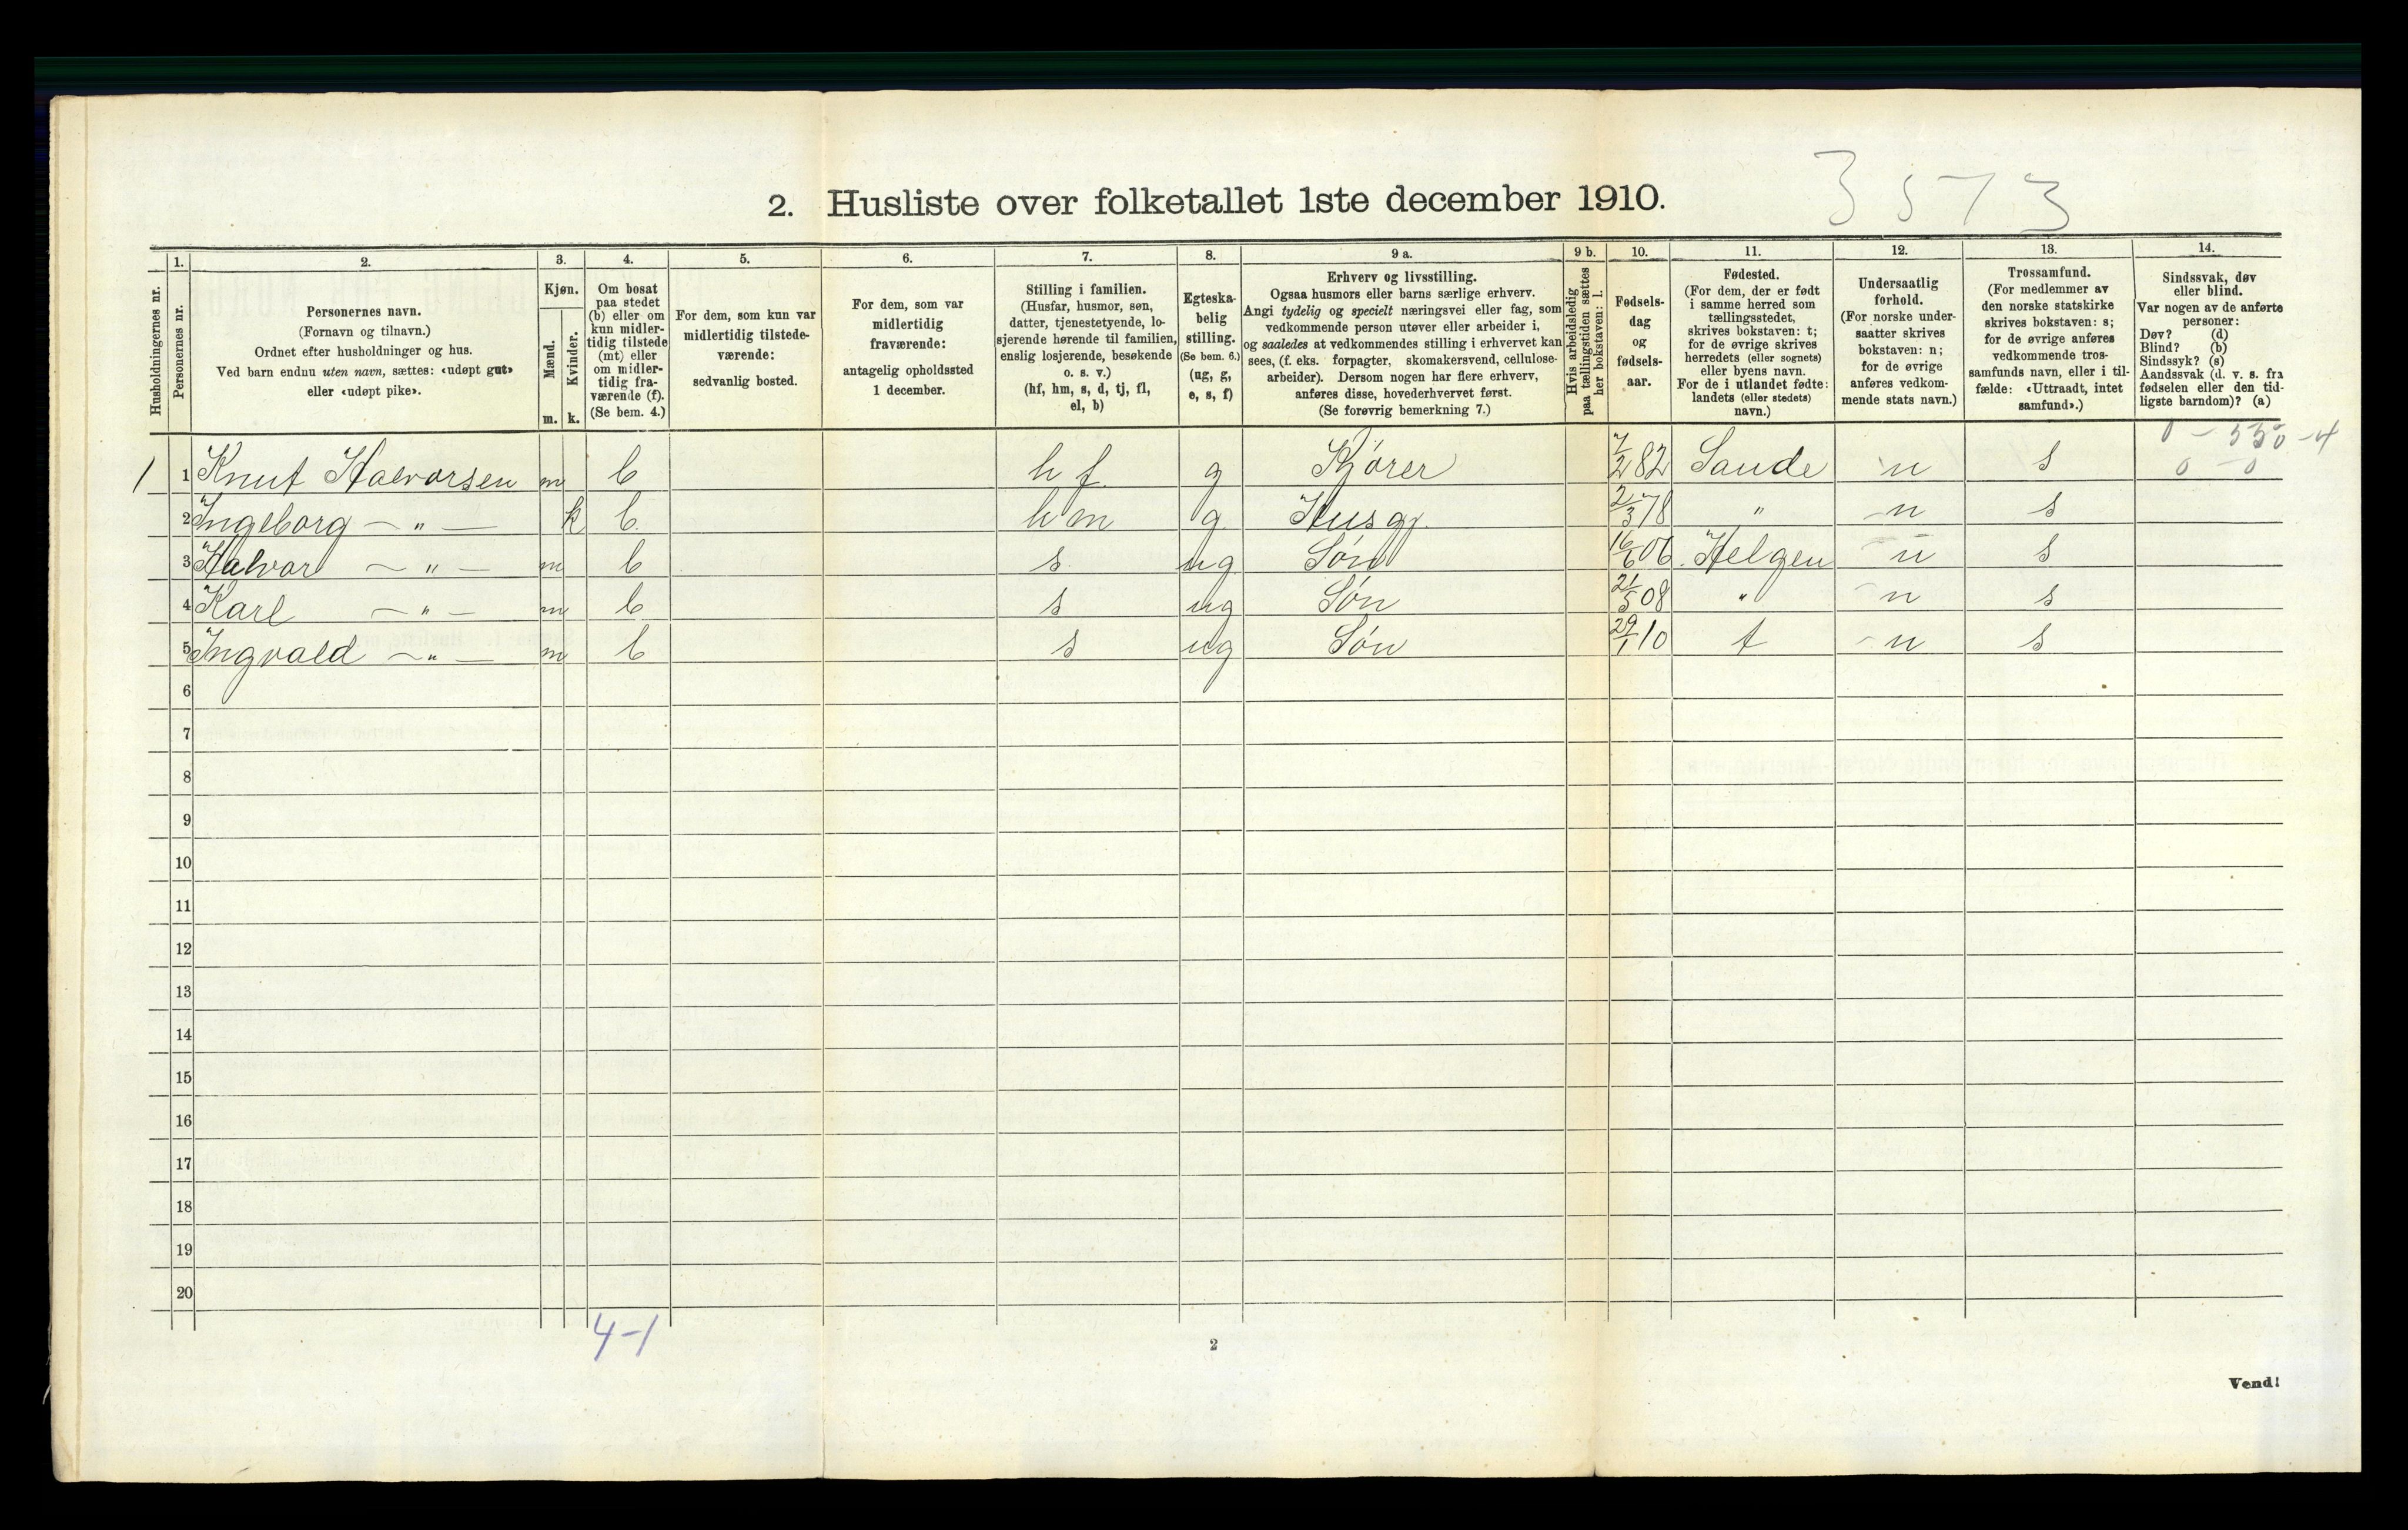 3573
2. Husliste over folketallet 1ste december 1910.
Husholdningernes nr.
1. Personernes nr.
2. Personernes navn.
(Fornavn og tilnavn.)
Ordnet efter husholdninger og hus.
Ved barn endnu uten navn, sættes: «udøpt gut»
eller «udøpt pike».
3. Kjøn.
Mænd. Kvinder.
m. k.
4. Om bosat
paa stedet
(b) eller om
kun midler-
tidig tilstede
(mt) eller
om midler-
tidig fra-
værende (f).
(Se bem. 4.)
5. For dem, som kun var
midlertidig tilstede-
værende:
sedvanlig bosted.
6. For dem, som var
midlertidig
fraværende:
antagelig opholdssted
1 december.
7. Stilling i familien.
(Husfar, husmor, søn,
datter, tjenestetyende, lo-
sjerende hørende til familien,
enslig losjerende, besøkende
o. s. v.)
(hf, hm, s, d, tj, fl,
el, b)
8. Egteska-
belig
stilling.
(Se bem. 6.)
(ug, g,
e, s, f)
9 a. Erhverv og livsstilling.
Ogsaa husmors eller barns særlige erhverv.
Angi tydelig og specielt næringsvei eller fag, som
vedkommende person utøver eller arbeider i,
og saaledes at vedkommendes stilling i erhvervet kan
sees, (f. eks. forpagter, skomakersvend, cellulose-
arbeider). Dersom nogen har flere erhverv,
anføres disse, hovederhvervet først.
(Se forøvrig bemerkning 7.)
9 b. Hvis arbeidsledig
paa tællingstiden sættes
her bokstaven: l.
10. Fødsels-
dag
og
fødsels-
aar.
11. Fødested.
(For dem, der er født
i samme herred som
tællingsstedet,
skrives bokstaven: t;
for de øvrige skrives
herredets (eller sognets)
eller byens navn.
For de i utlandet fødte:
landets (eller stedets)
navn.)
12. Undersaatlig
forhold.
(For norske under-
saatter skrives
bokstaven: n;
for de øvrige
anføres vedkom-
mende stats navn.)
13. Trossamfund.
(For medlemmer av
den norske statskirke
skrives bokstaven: s;
for de øvrige anføres
vedkommende tros-
samfunds navn, eller i til-
fælde: «Uttraadt, intet
samfund».)
14. Sindssvak, døv
eller blind.
Var nogen av de anførte
personer:
Døv? (d)
Blind? (b)
Sindssyk? (s)
Aandssvak (d. v. s. fra
fødselen eller den tid-
ligste barndom)? (a)
0 – 550 – 4
0 – 0
1 1 Knut Halvorsen m b h f g Kjører 7/2 82 Sande n s
2 Ingeborg – „ – k b h m g Husgj. 2/3 78 „ n s
3 Halvor – „ – m b s ug Søn 16/6 06 Helgen n s
4 Karl – „ – m b s ug Søn 21/5 08 „ n s
5 Ingvald – „ – m b s ug Søn 29/1 10 t n s
6
7
8
9
10
11
12
13
14
15
16
17
18
19
20
4-1
2
Vend!